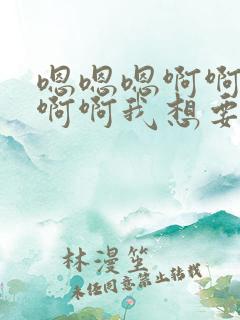 嗯嗯嗯啊啊
啊啊我想要
林漫笙
未经同意禁止转载